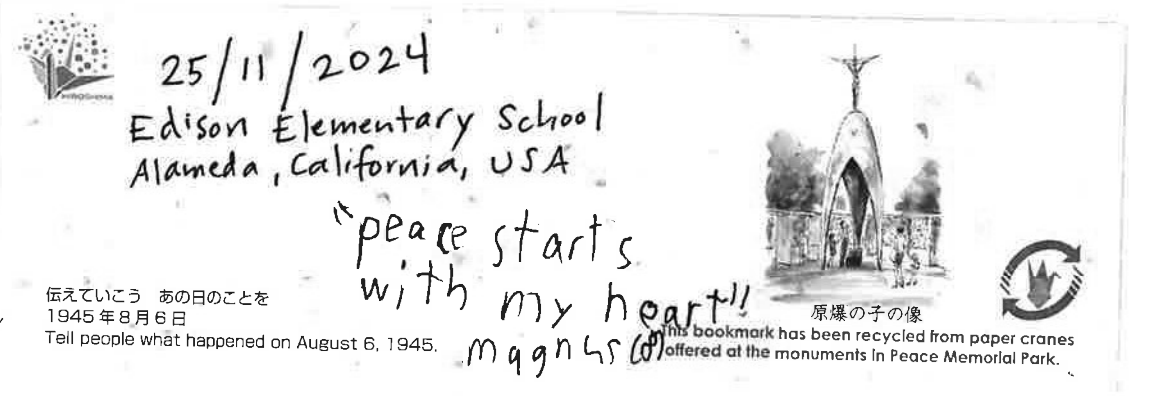 HIROSHIMA
25/11/2024
Edison Elementary School
Alameda, California, USA
"peace starts
with my heart"!
magnus (8)
伝えていこう　あの日のことを
1945年8月6日
Tell people what happened on August 6, 1945.
原爆の子の像
This bookmark has been recycled from paper cranes
offered at the monuments in Peace Memorial Park.